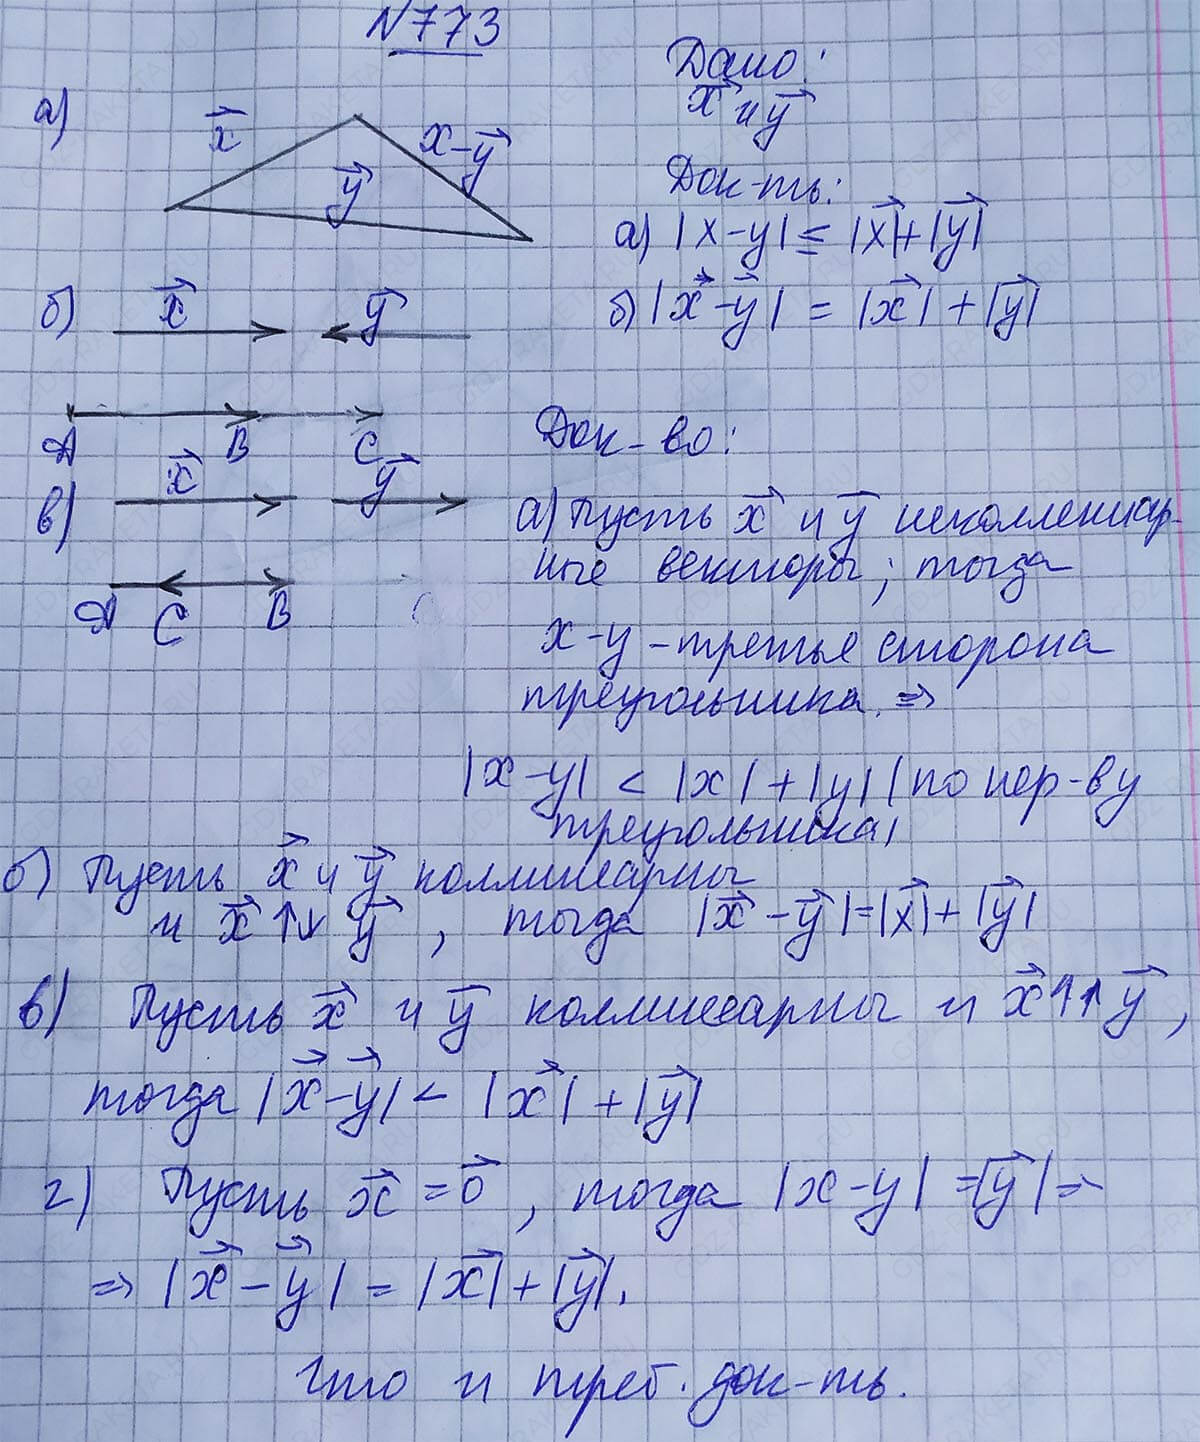 N773
Дано:
x⃗ и y⃗
Док-ть:
а) |x-y| ≤ |x⃗|+|y⃗|
б) |x⃗-y⃗| = |x⃗|+|y⃗|
а)
x⃗
x-y⃗
y⃗
б)
x⃗
y⃗
A B C
в)
x⃗
y⃗
A C B
Док-во:
а) Пусть x⃗ и y⃗ неколлениар-
ные векторы; тогда
x-y - третье сторона
треугольника. =>
|x-y| < |x|+|y| (по нер-ву
треугольника)
б) Пусть x⃗ и y⃗ коллинеарны
и x⃗ ↑↓ y⃗, тогда |x⃗-y⃗|=|x⃗|+|y⃗|
в) Пусть x⃗ и y⃗ коллинеарны и x⃗↑↑y⃗,
тогда |x⃗-y⃗| < |x⃗|+|y⃗|
г) Пусть x⃗=0⃗, тогда |x-y|=|y⃗| =>
=> |x⃗-y⃗| = |x⃗|+|y⃗|.
Что и треб. док-ть.